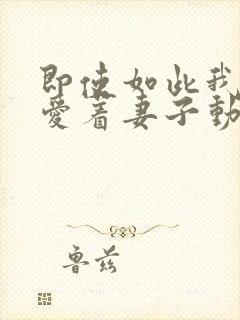 即使如此我
愛着妻子動
魯兹